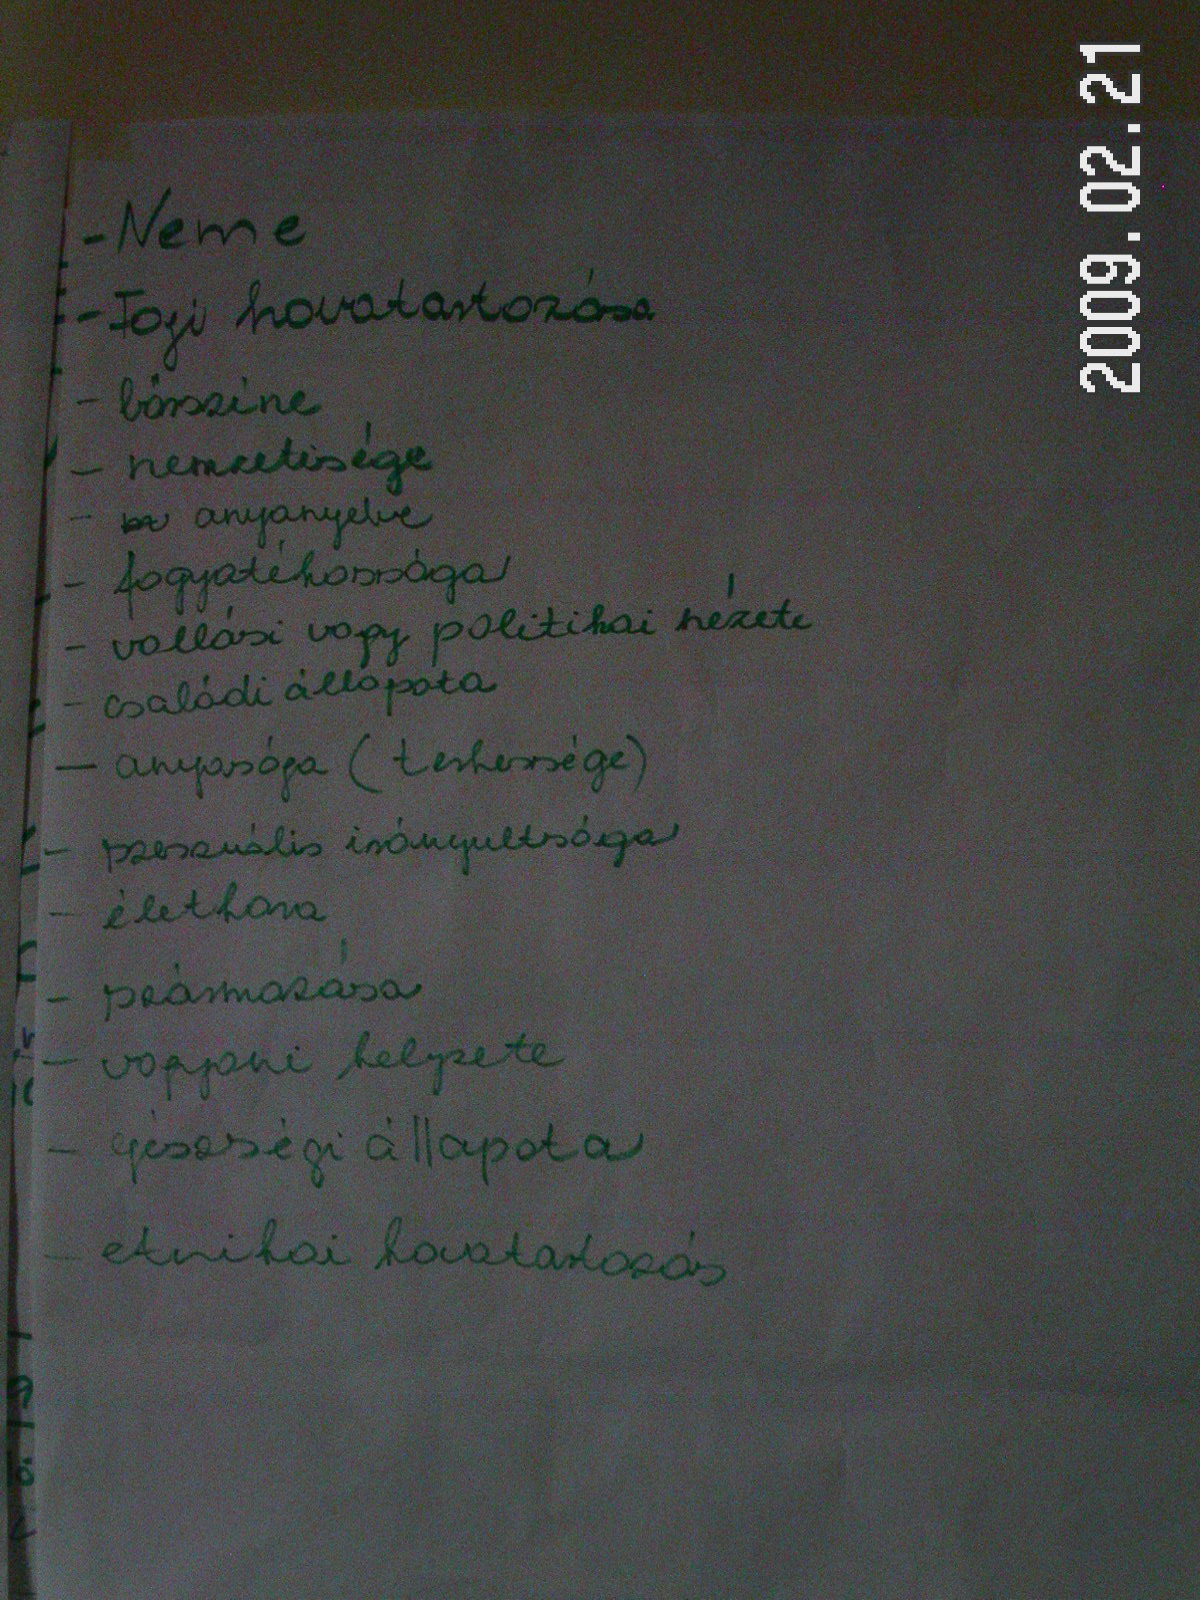 2009.02.21
- Neme
- Faji hovatartozása
- bőrszíne
- nemzetisége
- anyanyelve
- fogyatékossága
- vallási vagy politikai nézete
- családi állapota
- anyasága (terhessége)
- szexuális irányultsága
- életkora
- származása
- vagyoni helyzete
- egészségi állapota
- etnikai hovatartozás